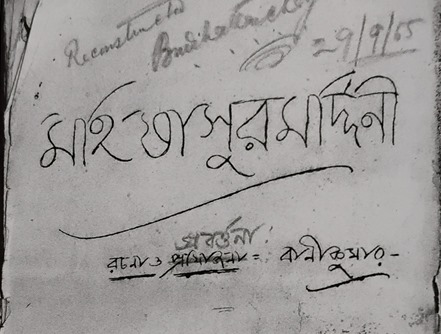 Reconstructed
29/9/65
মহিষাসুরমর্দ্দিনী
প্রবর্ত্তনা:
রচনা ও প্রযোজনা = বাণীকুমার -